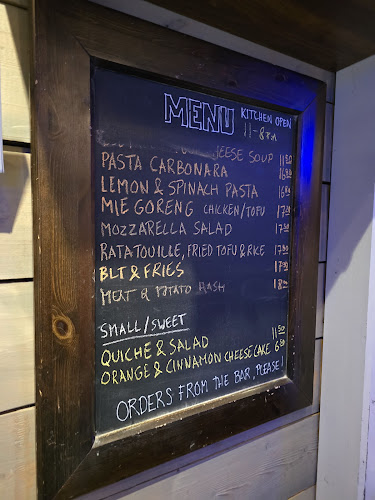 MENU KITCHEN OPEN
11-8PM
CHEESE SOUP 11.50
PASTA CARBONARA 16.90
LEMON & SPINACH PASTA 16.90
MIE GORENG CHICKEN/TOFU 17.50
MOZZARELLA SALAD 17.50
RATATOUILLE, FRIED TOFU & RICE 17.90
BLT & FRIES 17.90
MEAT & POTATO HASH
SMALL/SWEET
QUICHE & SALAD 11.50
ORANGE & CINNAMON CHEESECAKE
ORDERS FROM THE BAR, PLEASE!